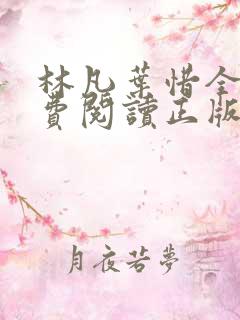 林凡葉惜全
費閱讀正版
月夜若夢